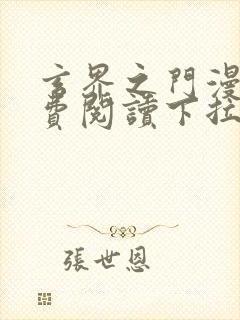 玄界之門漫
費閱讀下拉
張世恩